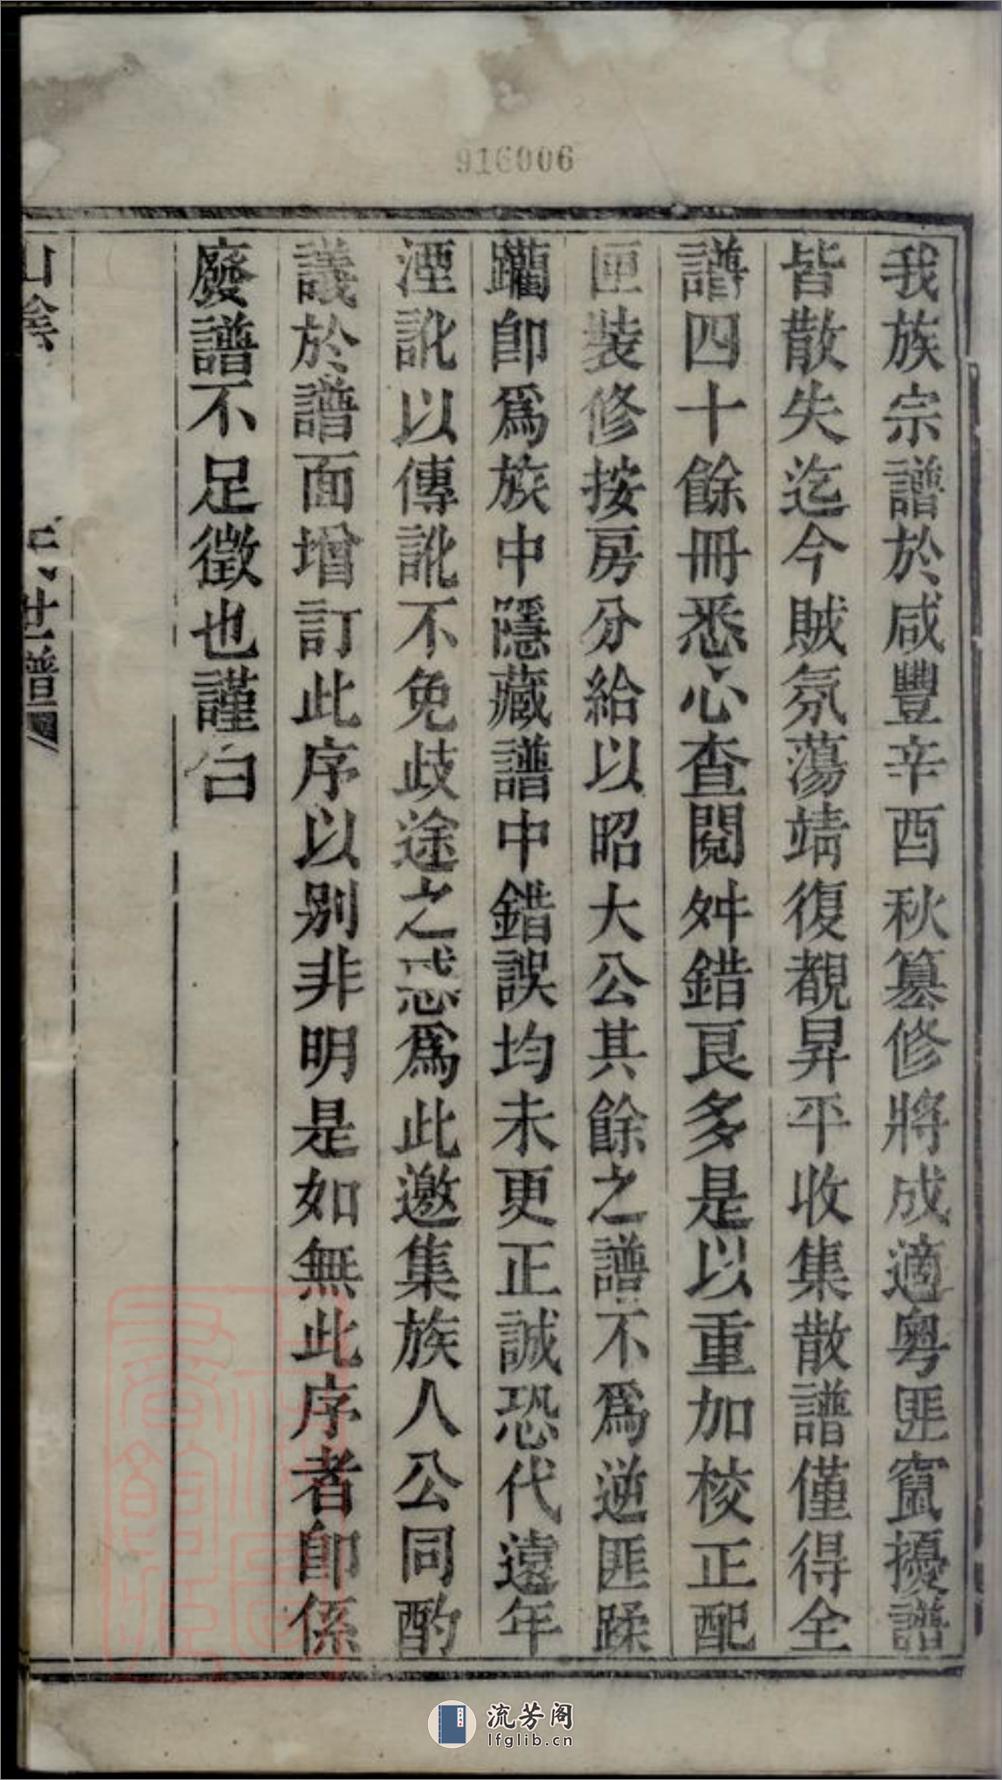 916006
我族宗譜於咸豐辛酉秋纂修將成適粵匪竄擾譜
皆散失迄今賊氛蕩靖復覩昇平收集散譜僅得全
譜四十餘冊悉心查閱舛錯良多是以重加校正配
匣裝修按房分給以昭大公其餘之譜不爲逆匪蹂
躪即爲族中隱藏譜中錯誤均未更正誠恐代遠年
湮訛以傳訛不免歧途之惑爲此邀集族人公同酌
議於譜面增訂此序以别非明是如無此序者即係
廢譜不足徵也謹白
山陰
氏世譜
流芳阁
lfglib.cn